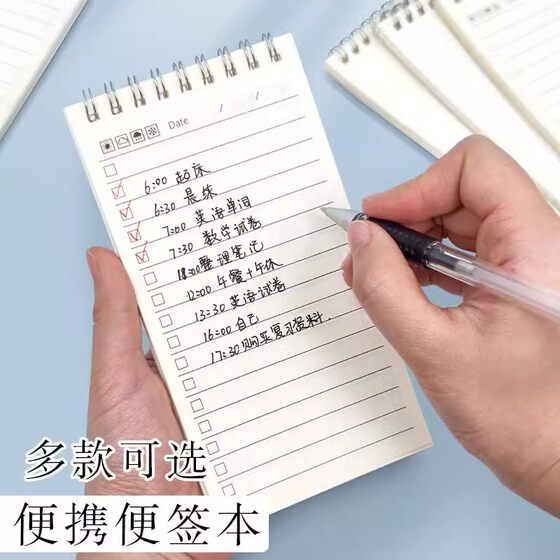 Date / /
6:00 起床
6:30 晨练
7:00 英语单词
7:30 数学试卷
整理笔记
12:00 午餐+午休
13:30 英语试卷
16:00 自己
17:30 购买复习资料
多款可选
便携便签本